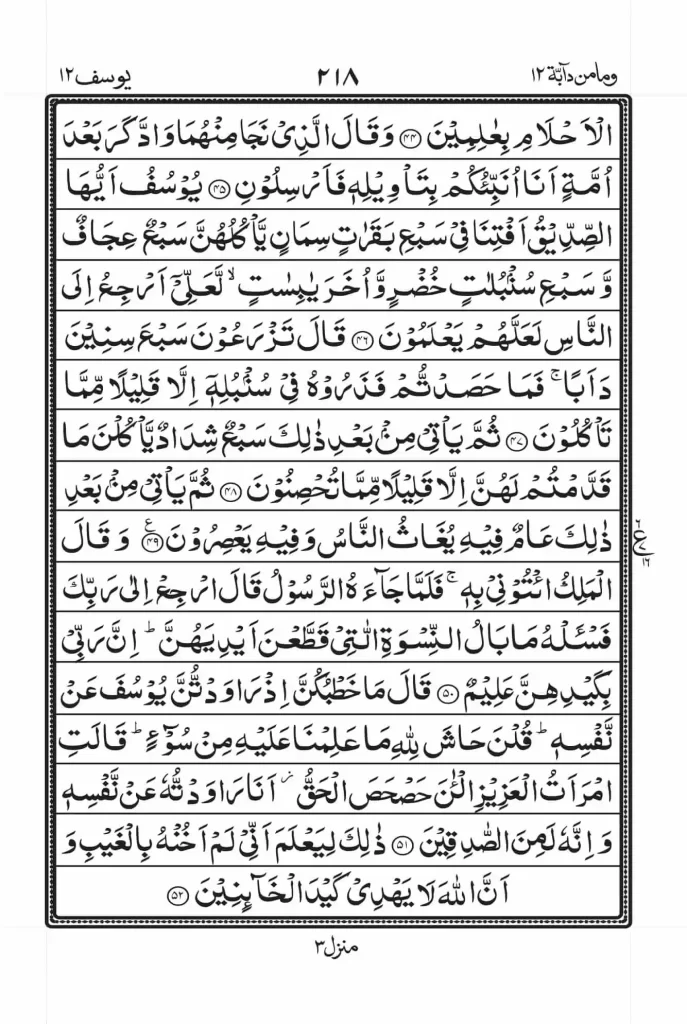 وما من دآبة ١٢ ٢١٨ يوسف ١٢
الۡاَحۡلَامِ بِعٰلِمِيۡنَ ﴿۴۴﴾ وَقَالَ الَّذِىۡ نَجَا مِنۡهُمَا وَادَّكَرَ بَعۡدَ
اُمَّةٍ اَنَا اُنَبِّئُكُمۡ بِتَاۡوِيۡلِهٖ فَاَرۡسِلُوۡنِ ﴿۴۵﴾ يُوۡسُفُ اَيُّهَا
الصِّدِّيۡقُ اَفۡتِنَا فِىۡ سَبۡعِ بَقَرٰتٍ سِمَانٍ يَّاۡكُلُهُنَّ سَبۡعٌ عِجَافٌ
وَّسَبۡعِ سُنۡۢبُلٰتٍ خُضۡرٍ وَّاُخَرَ يٰبِسٰتٍ ۙ لَّعَلِّىۡۤ اَرۡجِعُ اِلَى
النَّاسِ لَعَلَّهُمۡ يَعۡلَمُوۡنَ ﴿۴۶﴾ قَالَ تَزۡرَعُوۡنَ سَبۡعَ سِنِيۡنَ
دَاَبًا ۚ فَمَا حَصَدْتُّمۡ فَذَرُوۡهُ فِىۡ سُنۡۢبُلِهٖۤ اِلَّا قَلِيۡلًا مِّمَّا
تَاۡكُلُوۡنَ ﴿۴۷﴾ ثُمَّ يَاۡتِىۡ مِنۡۢ بَعۡدِ ذٰلِكَ سَبۡعٌ شِدَادٌ يَّاۡكُلۡنَ مَا
قَدَّمۡتُمۡ لَهُنَّ اِلَّا قَلِيۡلًا مِّمَّا تُحۡصِنُوۡنَ ﴿۴۸﴾ ثُمَّ يَاۡتِىۡ مِنۡۢ بَعۡدِ
ذٰلِكَ عَامٌ فِيۡهِ يُغَاثُ النَّاسُ وَفِيۡهِ يَعۡصِرُوۡنَ ﴿۴۹﴾ ع وَقَالَ
الۡمَلِكُ ائۡتُوۡنِىۡ بِهٖ ۚ فَلَمَّا جَآءَهُ الرَّسُوۡلُ قَالَ ارۡجِعۡ اِلٰى رَبِّكَ
فَسۡــَٔلۡهُ مَا بَالُ النِّسۡوَةِ الّٰتِىۡ قَطَّعۡنَ اَيۡدِيَهُنَّ ؕ اِنَّ رَبِّىۡ
بِكَيۡدِهِنَّ عَلِيۡمٌ ﴿۵۰﴾ قَالَ مَا خَطۡبُكُنَّ اِذۡ رَاوَدْتُّنَّ يُوۡسُفَ عَنۡ
نَّفۡسِهٖ ؕ قُلۡنَ حَاشَ لِلّٰهِ مَا عَلِمۡنَا عَلَيۡهِ مِنۡ سُوۡٓءٍ ؕ قَالَتِ
امۡرَاَتُ الۡعَزِيۡزِ الۡـٰٔنَ حَصۡحَصَ الۡحَقُّ اَنَا رَاوَدْتُّهٗ عَنۡ نَّفۡسِهٖ
وَاِنَّهٗ لَمِنَ الصّٰدِقِيۡنَ ﴿۵۱﴾ ذٰلِكَ لِيَـعۡلَمَ اَنِّىۡ لَمۡ اَخُنۡهُ بِالۡغَيۡبِ وَ
اَنَّ اللّٰهَ لَا يَهۡدِىۡ كَيۡدَ الۡخَآٮِٕنِيۡنَ ﴿۵۲﴾
ع
١٦
منزل ٣